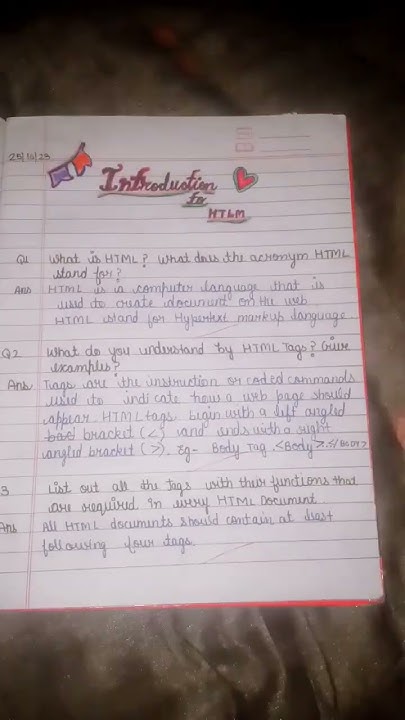 25/10/23
Introduction
to
HTLM
Q1 What is HTML? What does the acronym HTML
stand for?
Ans HTML is a computer language that is
used to create document on the web
HTML stand for Hypertext markup language
Q2 What do you understand by HTML Tags? Give
examples?
Ans Tags are the instruction or coded commands
used to indicate how a web page should
appear. HTML tags begin with a left angled
bracket (<) and ends with a right
angled bracket (>). Eg- Body Tag <Body>.</BODY>
3 List out all the tags with their functions that
are required in every HTML Document.
Ans All HTML documents should contain at least
following four tags.